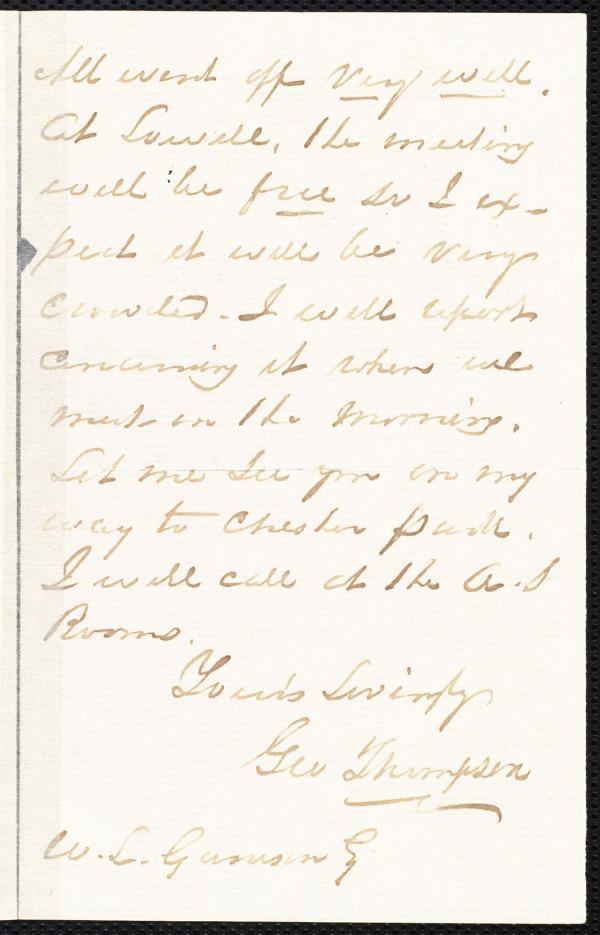 All went off very well.
At Lowell, the meeting
will be free so I ex-
pect it will be very
crowded. I will report
concerning it when we
meet in the morning.
Let me see you on my
way to Chester Park.
I will call at the A. S
Rooms.
Yours lovingly
Geo Thompson
W. L. Garrison